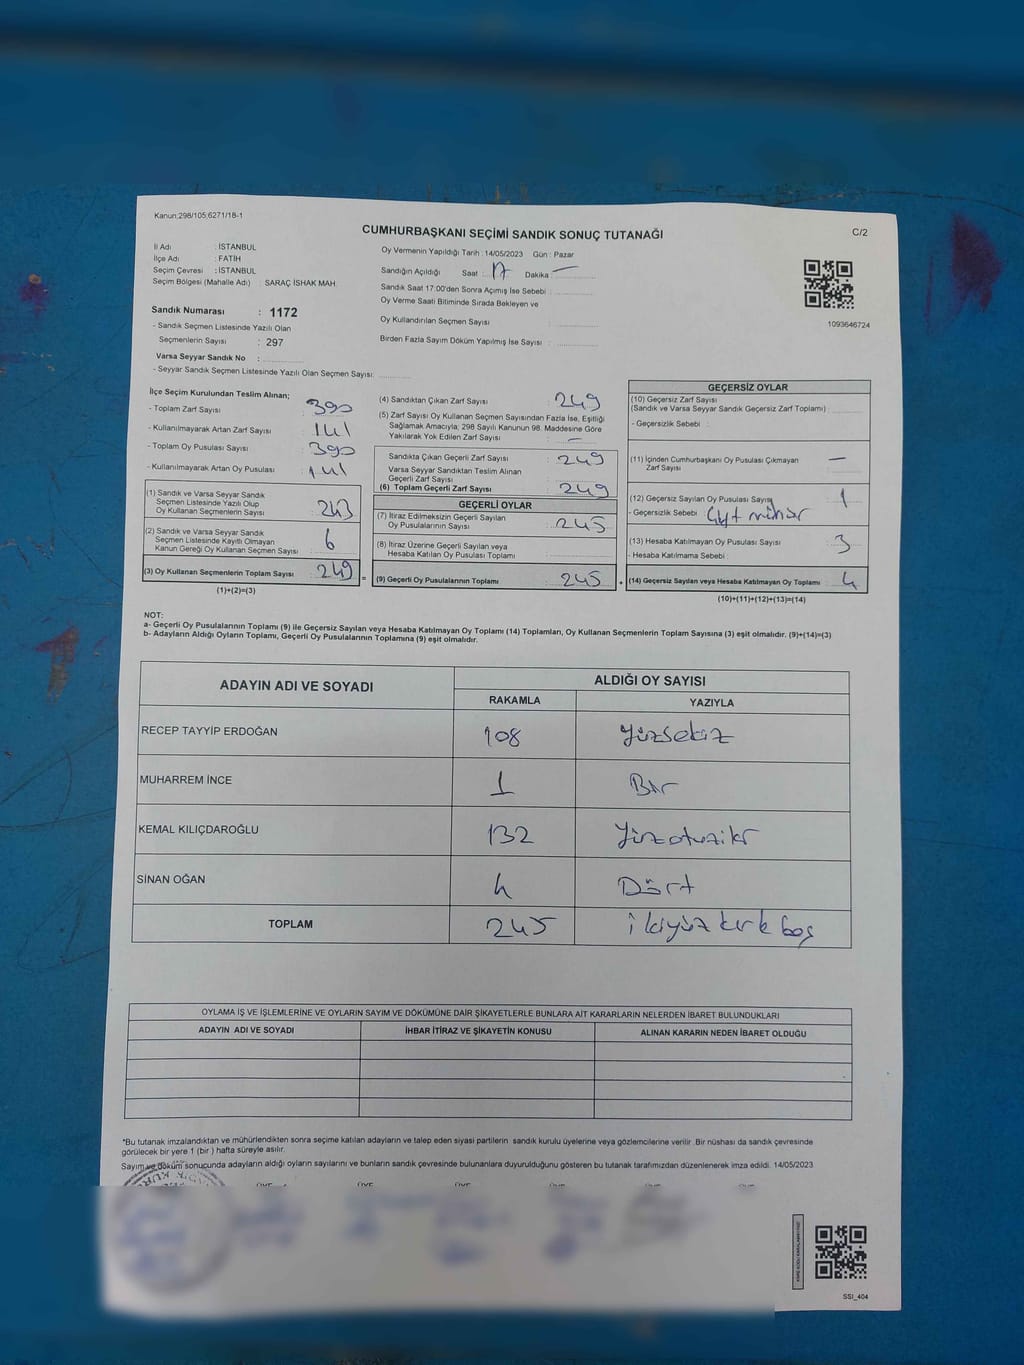 Kanun:298/105;6271/18-1
CUMHURBAŞKANI SEÇİMİ SANDIK SONUÇ TUTANAĞI
C/2
İl Adı : İSTANBUL
İlçe Adı : FATİH
Seçim Çevresi : İSTANBUL
Seçim Bölgesi (Mahalle Adı) : SARAÇ İSHAK MAH.
Sandık Numarası : 1172
- Sandık Seçmen Listesinde Yazılı Olan
Seçmenlerin Sayısı : 297
Varsa Seyyar Sandık No :
- Seyyar Sandık Seçmen Listesinde Yazılı Olan Seçmen Sayısı:
Oy Vermenin Yapıldığı Tarih : 14/05/2023 Gün : Pazar
Sandığın Açıldığı Saat : 17 Dakika : —
Sandık Saat 17:00'den Sonra Açımış İse Sebebi :
Oy Verme Saati Bitiminde Sırada Bekleyen ve
Oy Kullandırılan Seçmen Sayısı :
Birden Fazla Sayım Döküm Yapılmış İse Sayısı :
1093646724
İlçe Seçim Kurulundan Teslim Alınan;
- Toplam Zarf Sayısı : 390
- Kullanılmayarak Artan Zarf Sayısı : 141
- Toplam Oy Pusulası Sayısı : 390
- Kullanılmayarak Artan Oy Pusulası : 141
(1) Sandık ve Varsa Seyyar Sandık
Seçmen Listesinde Yazılı Olup
Oy Kullanan Seçmenlerin Sayısı : 243
(2) Sandık ve Varsa Seyyar Sandık
Seçmen Listesinde Kayıtlı Olmayan
Kanun Gereği Oy Kullanan Seçmen Sayısı : 6
(3) Oy Kullanan Seçmenlerin Toplam Sayısı : 249
(1)+(2)=(3)
(4) Sandıktan Çıkan Zarf Sayısı : 249
(5) Zarf Sayısı Oy Kullanan Seçmen Sayısından Fazla İse, Eşitliği
Sağlamak Amacıyla; 298 Sayılı Kanunun 98. Maddesine Göre
Yakılarak Yok Edilen Zarf Sayısı : —
Sandıkta Çıkan Geçerli Zarf Sayısı : 249
Varsa Seyyar Sandıktan Teslim Alınan
Geçerli Zarf Sayısı :
(6) Toplam Geçerli Zarf Sayısı : 249
GEÇERLİ OYLAR
(7) İtiraz Edilmeksizin Geçerli Sayılan
Oy Pusulalarının Sayısı : 245
(8) İtiraz Üzerine Geçerli Sayılan veya
Hesaba Katılan Oy Pusulası Toplamı :
(9) Geçerli Oy Pusulalarının Toplamı : 245
GEÇERSİZ OYLAR
(10) Geçersiz Zarf Sayısı
(Sandık ve Varsa Seyyar Sandık Geçersiz Zarf Toplamı) :
- Geçersizlik Sebebi :
(11) İçinden Cumhurbaşkanı Oy Pusulası Çıkmayan
Zarf Sayısı : —
(12) Geçersiz Sayılan Oy Pusulası Sayısı : 1
- Geçersizlik Sebebi : Çift mühür
(13) Hesaba Katılmayan Oy Pusulası Sayısı : 3
- Hesaba Katılmama Sebebi :
(14) Geçersiz Sayılan veya Hesaba Katılmayan Oy Toplamı : 4
(10)+(11)+(12)+(13)=(14)
NOT:
a- Geçerli Oy Pusulalarının Toplamı (9) ile Geçersiz Sayılan veya Hesaba Katılmayan Oy Toplamı (14) Toplamları, Oy Kullanan Seçmenlerin Toplam Sayısına (3) eşit olmalıdır. (9)+(14)=(3)
b- Adayların Aldığı Oyların Toplamı, Geçerli Oy Pusulalarının Toplamına (9) eşit olmalıdır.
ADAYIN ADI VE SOYADI
ALDIĞI OY SAYISI
RAKAMLA YAZIYLA
RECEP TAYYİP ERDOĞAN 108 Yüzsekiz
MUHARREM İNCE 1 Bir
KEMAL KILIÇDAROĞLU 132 Yüzotuziki
SİNAN OĞAN 4 Dört
TOPLAM 245 ikiyüz kırk beş
OYLAMA İŞ VE İŞLEMLERİNE VE OYLARIN SAYIM VE DÖKÜMÜNE DAİR ŞİKAYETLERLE BUNLARA AİT KARARLARIN NELERDEN İBARET BULUNDUKLARI
ADAYIN ADI VE SOYADI İHBAR İTİRAZ VE ŞİKAYETİN KONUSU ALINAN KARARIN NEDEN İBARET OLDUĞU
*Bu tutanak imzalandıktan ve mühürlendikten sonra seçime katılan adayların ve talep eden siyasi partilerin sandık kurulu üyelerine veya gözlemcilerine verilir. Bir nüshası da sandık çevresinde
görülecek bir yere 1 (bir) hafta süreyle asılır.
Sayım ve döküm sonucunda adayların aldığı oyların sayılarını ve bunların sandık çevresinde bulunanlara duyurulduğunu gösteren bu tutanak tarafımızdan düzenlenerek imza edildi. 14/05/2023
SSI_404